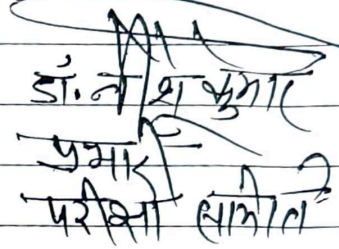 डॉ. नीरा कुमार
प्रभारी
परीक्षा समिति